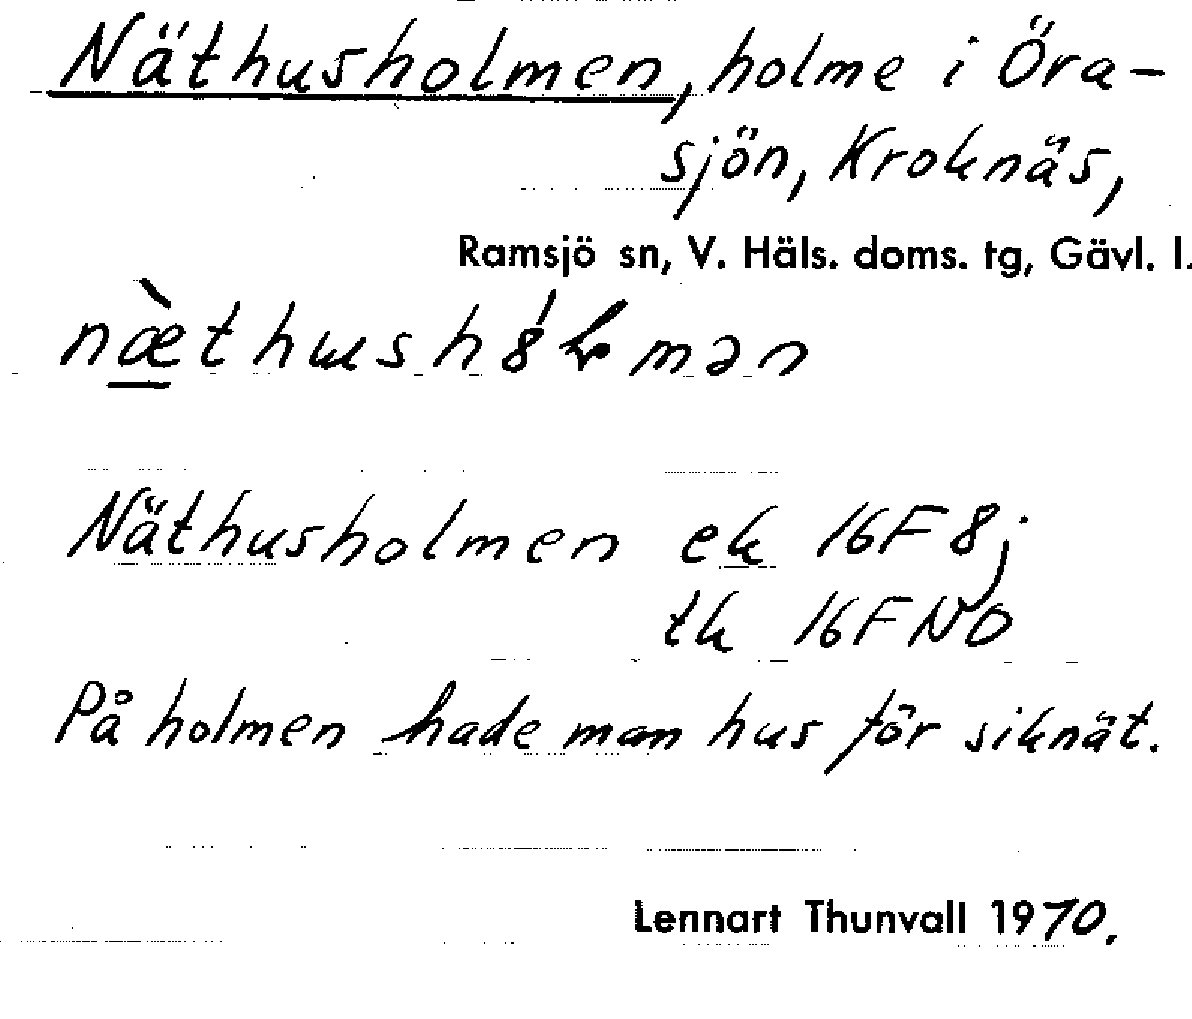 Näthusholmen, holme i Öra-
sjön, Kroknäs,
Ramsjö sn, V. Häls. doms. tg, Gävl. l.
Näthusholmen ek 16F 8j
tk 16F NO
På holmen hade man hus för siknät.
Lennart Thunvall 1970.